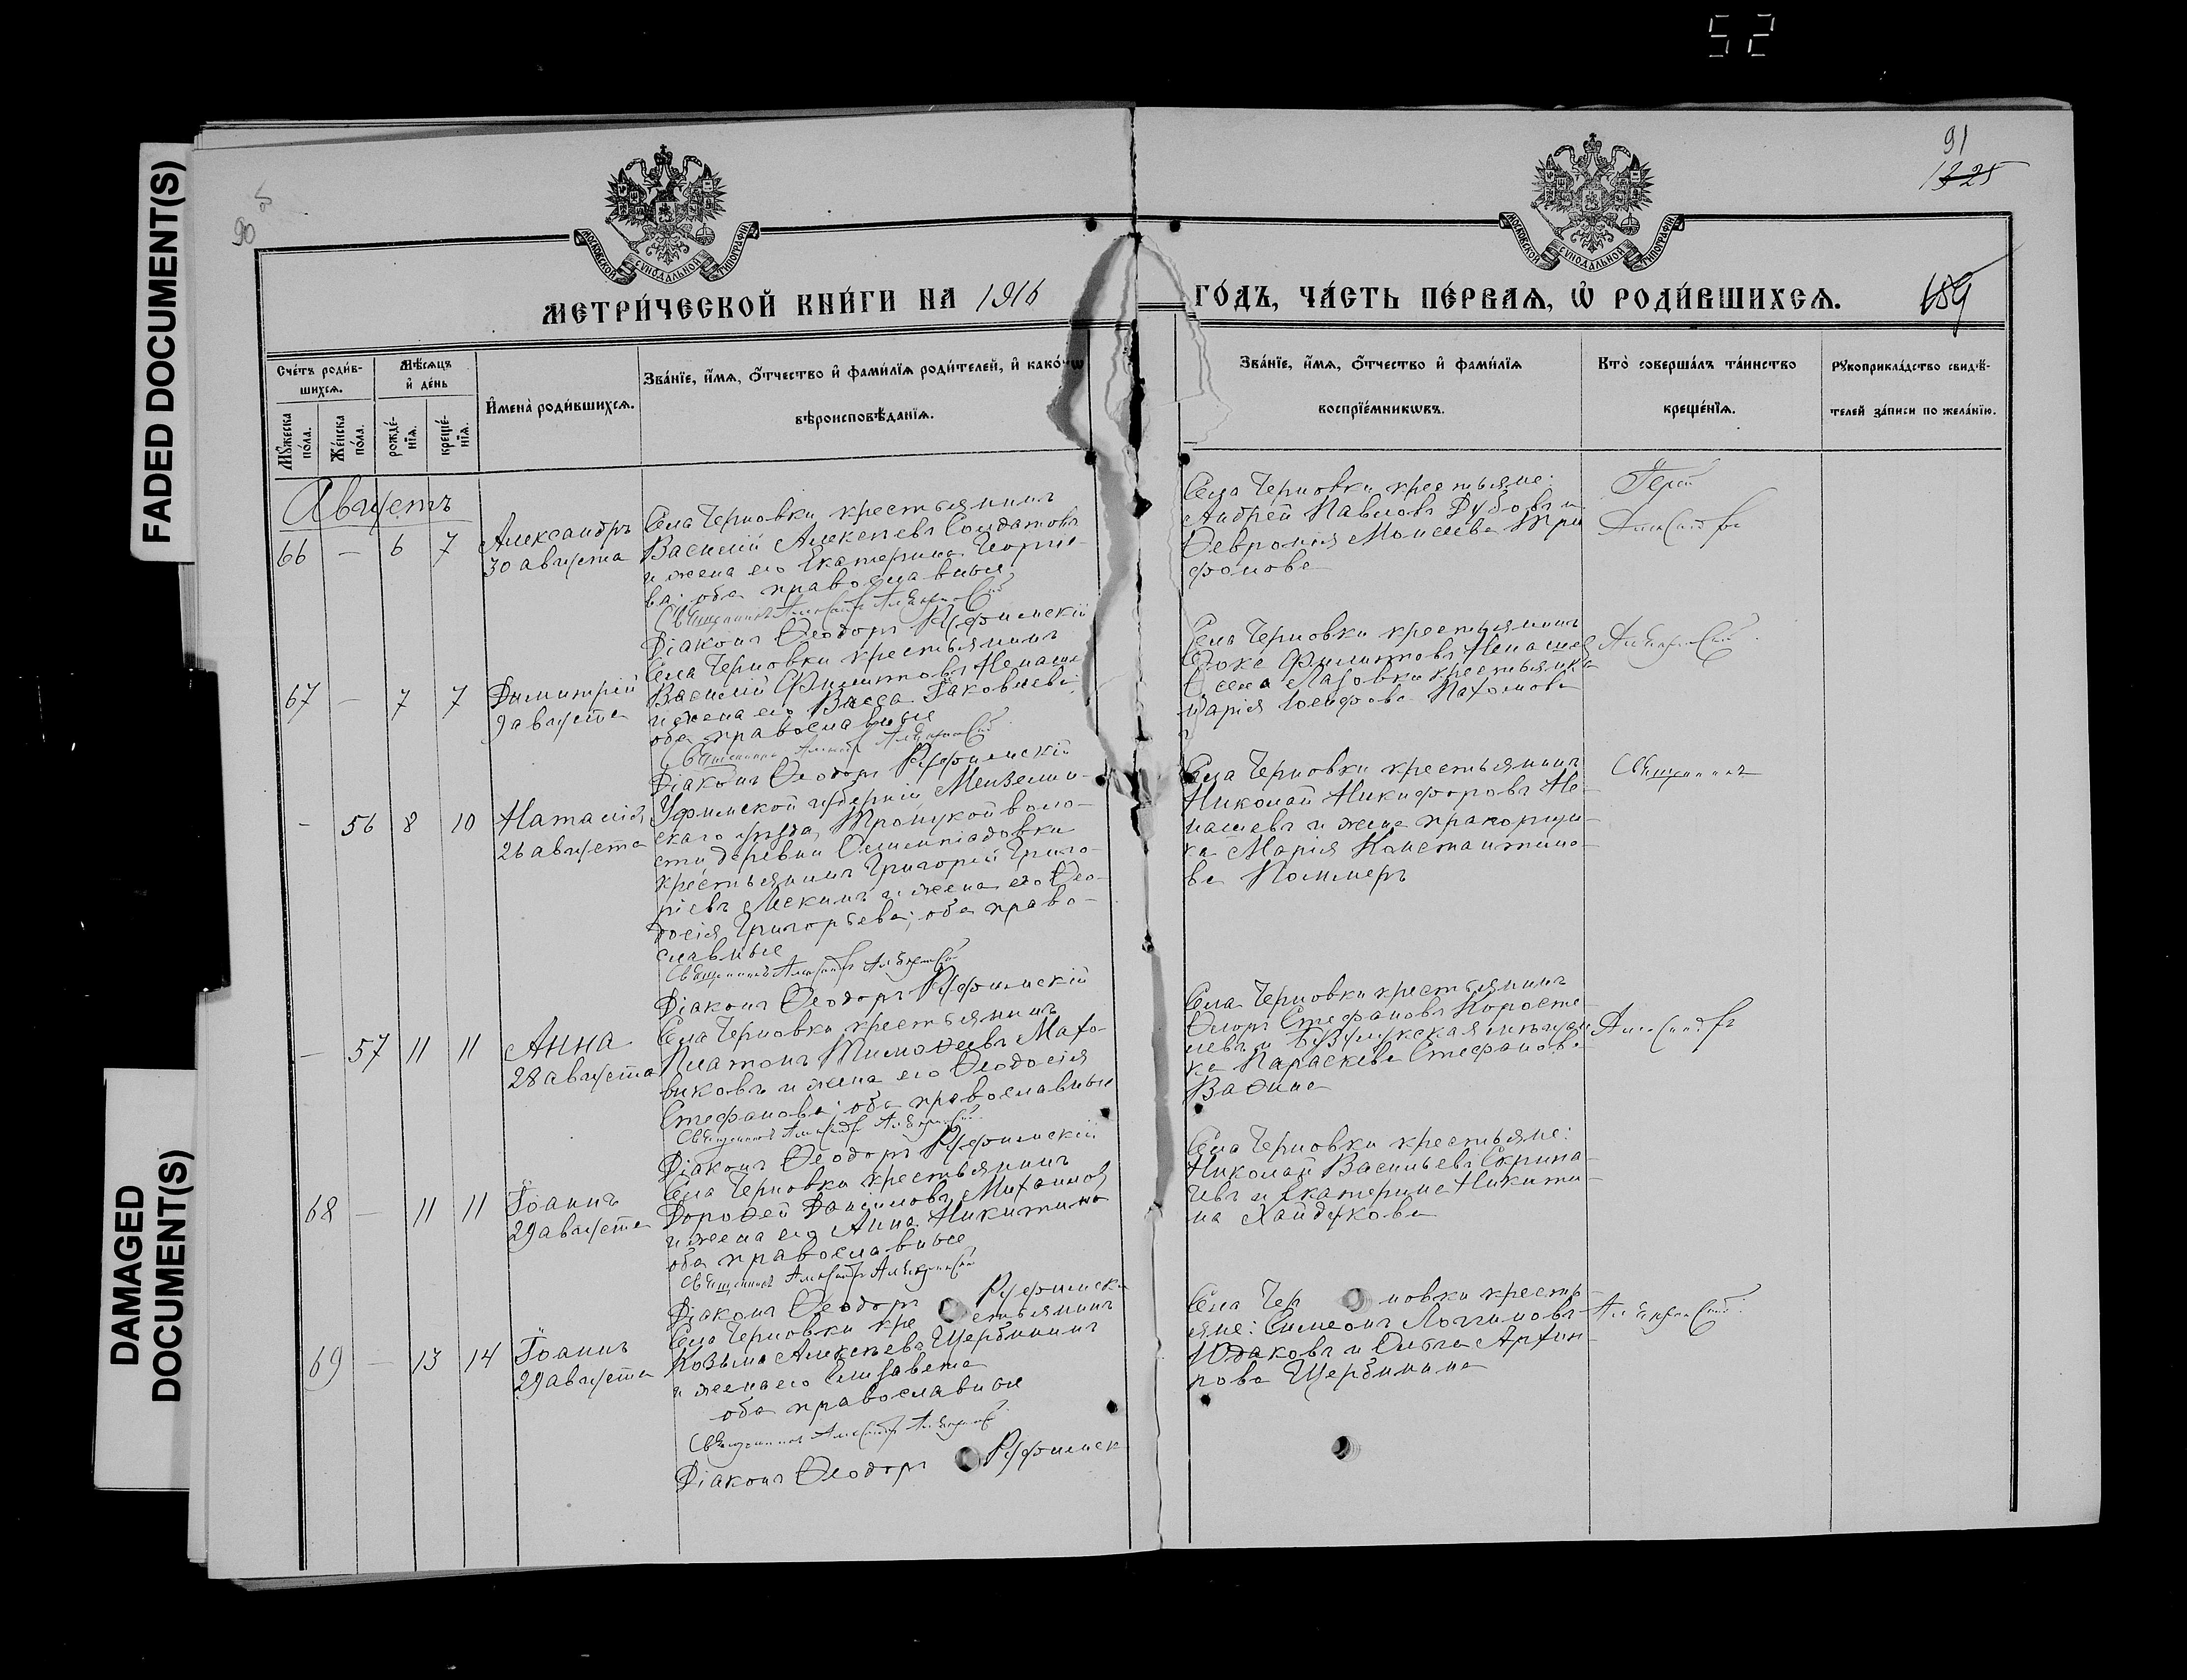 52
FADED DOCUMENT(S)
DAMAGED
DOCUMENT(S)
90
91
1325
МОСКОВСКОЙ СУНОДАЛЬНОЙ ТИПОГРАФІИ
МОСКОВСКОЙ СУНОДАЛЬНОЙ ТИПОГРАФІИ
МЕТРИ́ЧЕСКОЙ КНИ́ГИ НА 1916
ГО́ДЪ, ЧА́СТЬ ПЕ́РВАѦ, Ѡ҆ РОДИ́ВШИХСѦ.
189
Сче́тъ роди́в-
шихсѧ.
Мꙋжеска по́ла.
Же́нска по́ла.
Мѣ́сѧцъ
и҆ де́нь
рожде́-
нїѧ.
креще́-
нїѧ.
И҆мена̀ роди́вшихсѧ.
Зва́нїе, и҆́мѧ, ѻ҆́тчество и҆ фами́лїѧ роди́телей, и҆ како́гѡ
вѣроисповѣ́данїѧ.
Зва́нїе, и҆́мѧ, ѻ҆́тчество и҆ фами́лїѧ
воспрїе́мникѡвъ.
Кто̀ соверша́лъ та́инство
креще́нїѧ.
Рꙋкоприкла́дство свидѣ́-
телей за́писи по жела́нїю.
Августъ
66 — 6 7
Александръ
30 августа
Села Черновки крестьянинъ
Василій Алексѣевъ Солдатовъ
и жена его Екатерина Георгіе-
ва; оба православные
Священникъ
Діаконъ Ѳеодоръ Руфимскій
Села Черновки крестьяне:
Андрей Павловъ Дубовъ и
Февронія Моисеева Три
фонова
Іерей
67 — 7 7
Димитрій
9 августа
Села Черновки крестьянинъ
Василій Филипповъ Ненаше
и жена его Васса Іаковлева;
оба православные
Священникъ
Діаконъ Ѳеодоръ Руфимскій
Села Черновки крестьянинъ
Филипповъ Ненашев
села Лазовки крестьянка
Марія Іосифова Пахомова
— 56 8 10
Наталія
26 августа
Уфимской губерніи Мензелин-
скаго уѣзда, Троицкой воло-
сти деревни Олимпіадовки
крестьянинъ Григорій Григо-
ріевъ и жена его Ѳео-
досія Григорьева; оба право-
славные
Священникъ
Діаконъ Ѳеодоръ Руфимскій
Села Черновки крестьянинъ
Николай Никифоровъ Не-
нашевъ и жена прапорщи-
ка Марія Константино-
ва Поммеръ
Священникъ
— 57 11 11
Анна
28 августа
Села Черновки крестьянинъ
Платонъ Тимоѳеевъ Махо-
виковъ и жена его Ѳеодосія
Стефанова; оба православные
Священникъ
Діаконъ Ѳеодоръ Руфимскій
Села Черновки крестьянинъ
Стефановъ Коросте-
левъ и Бузулукская мѣщан
ка Параскева Стефанова
68 — 11 11
Іоаннъ
29 августа
Села Черновки крестьянинъ
Дороѳей Даніиловъ Михайлов
и жена его Анна Никитина
оба православные
Священникъ
Діаконъ Ѳеодоръ Руфимск
Села Черновки крестьяне:
Николай Васильевъ Скрипа-
чевъ и Екатерина Никити-
на Хайдукова
69 — 13 14
Іоаннъ
29 августа
Села Черновки крестьянинъ
Козьма Алексѣевъ Щербининъ
и жена его Елизавета
оба православные
Священникъ
Діаконъ Ѳеодоръ Руфимск
Села Черновки кресть-
яне: Симеонъ Логгиновъ
Юдаковъ и Ольга Архип-
пова Щербинина